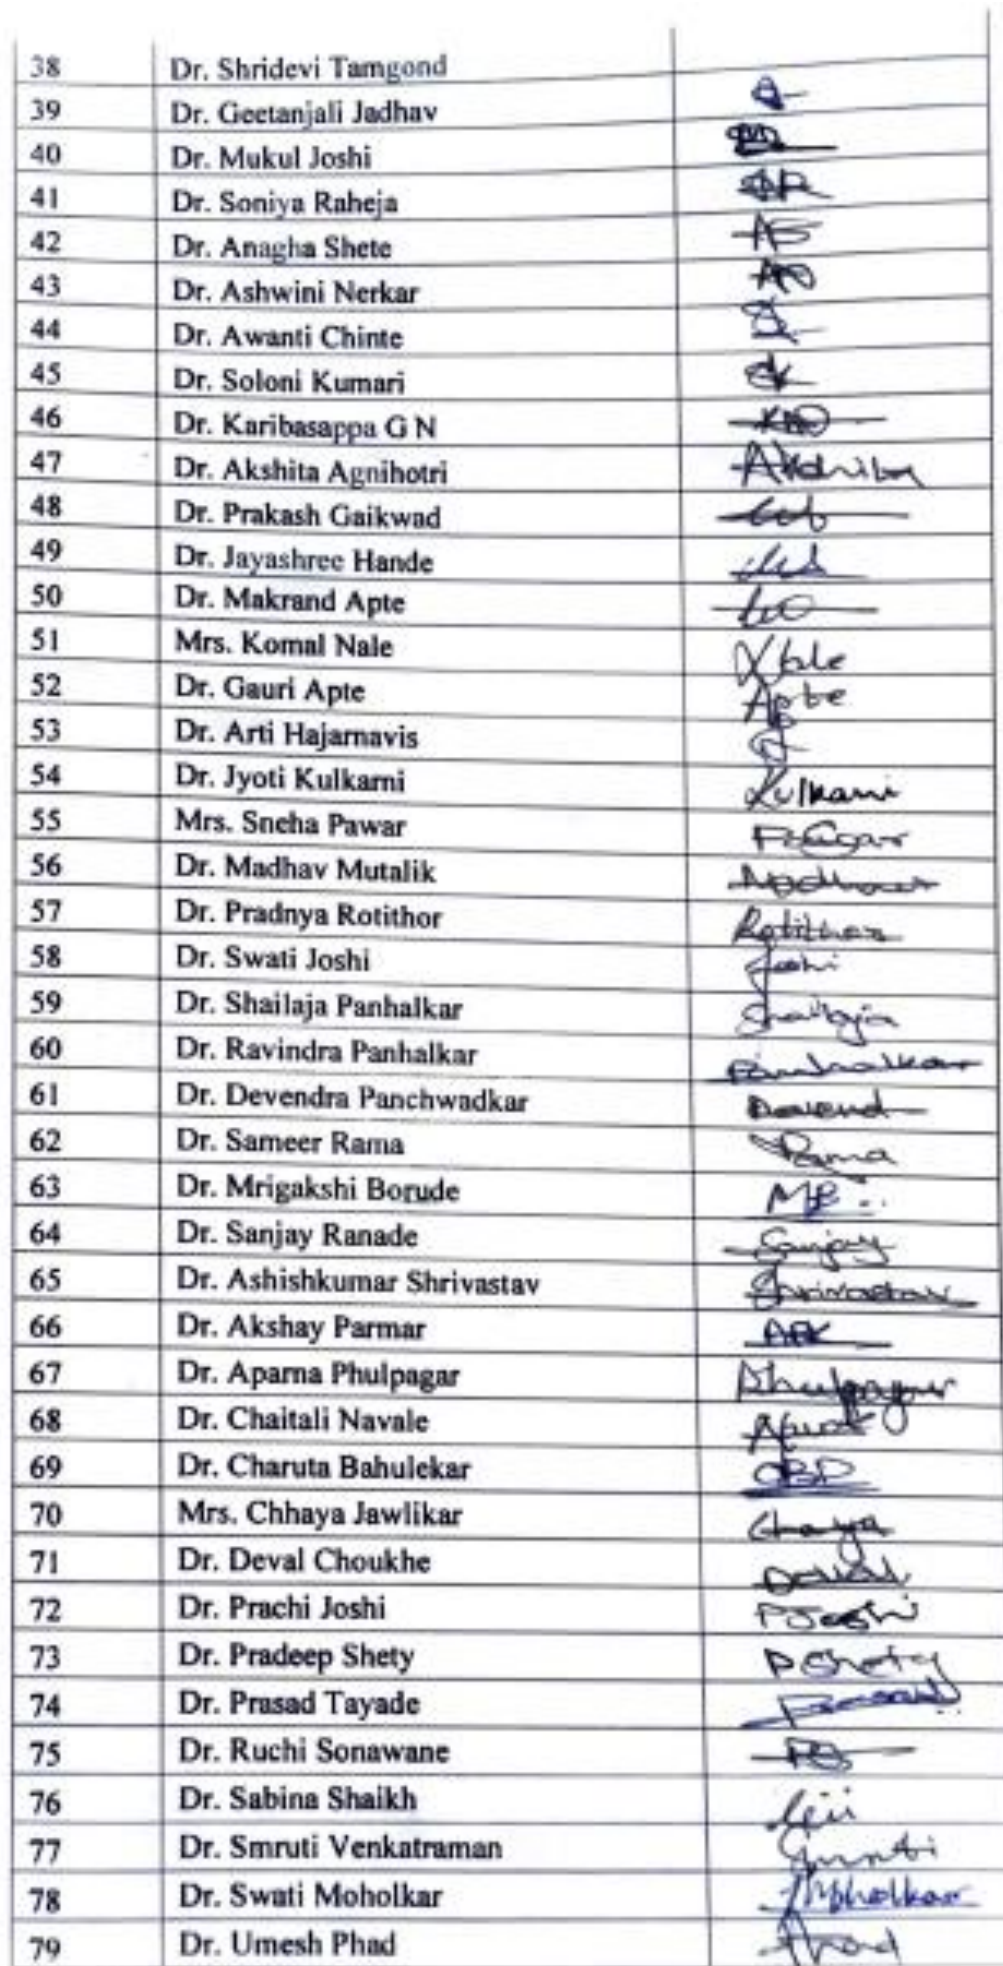 38 Dr. Shridevi Tamgond
39 Dr. Geetanjali Jadhav
40 Dr. Mukul Joshi
41 Dr. Soniya Raheja SR
42 Dr. Anagha Shete AS
43 Dr. Ashwini Nerkar
44 Dr. Awanti Chinte
45 Dr. Soloni Kumari SK
46 Dr. Karibasappa G N
47 Dr. Akshita Agnihotri
48 Dr. Prakash Gaikwad
49 Dr. Jayashree Hande
50 Dr. Makrand Apte
51 Mrs. Komal Nale
52 Dr. Gauri Apte Apte
53 Dr. Arti Hajarnavis
54 Dr. Jyoti Kulkarni Kulkarni
55 Mrs. Sneha Pawar
56 Dr. Madhav Mutalik Madhav
57 Dr. Pradnya Rotithor Rotithor
58 Dr. Swati Joshi Joshi
59 Dr. Shailaja Panhalkar Shailaja
60 Dr. Ravindra Panhalkar Panhalkar
61 Dr. Devendra Panchwadkar Devend
62 Dr. Sameer Rama Rama
63 Dr. Mrigakshi Borude MB
64 Dr. Sanjay Ranade Sanjay
65 Dr. Ashishkumar Shrivastav Shrivastav
66 Dr. Akshay Parmar
67 Dr. Aparna Phulpagar Phulpagar
68 Dr. Chaitali Navale
69 Dr. Charuta Bahulekar
70 Mrs. Chhaya Jawlikar Chaya
71 Dr. Deval Choukhe Deval
72 Dr. Prachi Joshi PJoshi
73 Dr. Pradeep Shety P Shety
74 Dr. Prasad Tayade Prasad
75 Dr. Ruchi Sonawane
76 Dr. Sabina Shaikh
77 Dr. Smruti Venkatraman Smruti
78 Dr. Swati Moholkar Moholkar
79 Dr. Umesh Phad Phad